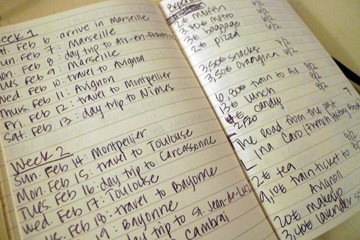 Week 1
Sat. Feb 6: arrive in Marseille
Sun. Feb 7: Marseille
Mon. Feb 8: day trip to Aix-en-
Tues. Feb 9: Marseille
Wed. Feb 10: travel to Avignon
Thurs. Feb 11: Avignon
Fri. Feb 12: travel to Montpellier
Sat. Feb 13: day trip to Nimes
Week 2
Sun. Feb 14: Montpellier
Mon. Feb 15: travel to Toulouse
Tues. Feb 16: day trip to Carcassonne
Wed. Feb 17: Toulouse
Feb 18: travel to Bayonne
19: Bayonne
day trip to St. Jean de Luz
Cambrai
2€
metro
baggage
2€ pizza
3,50€ snacks
3,50€ orangina
6,80€ train to Aix
13€ lunch
candy
The road from the
in a
2€ tea
9,10€ train ticket to
Avignon
20€ makeup
3,40€ lavender